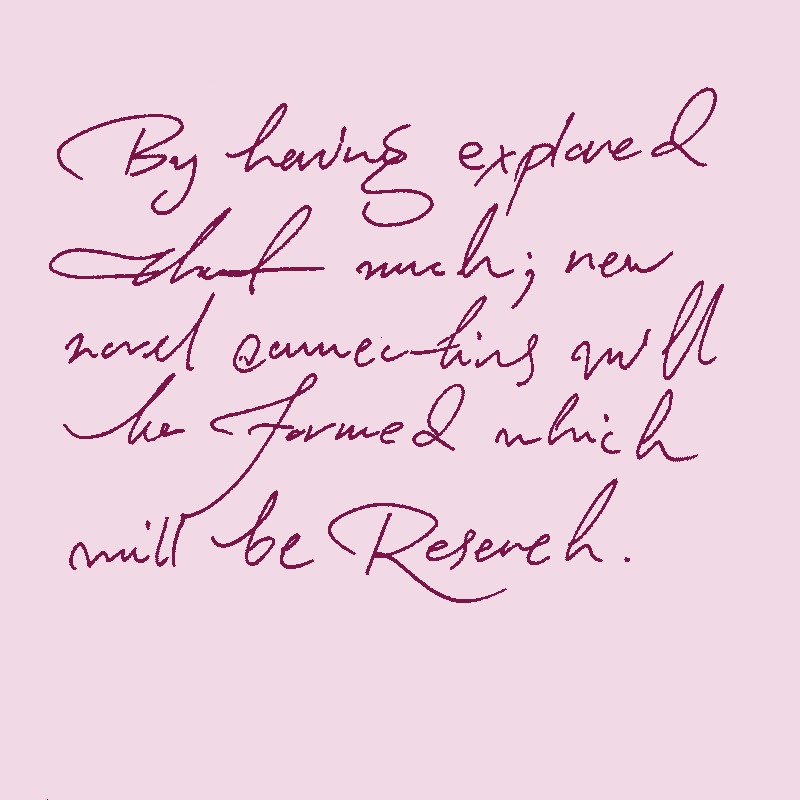 By having explored
that much; new
novel connections will
be formed which
will be Research.